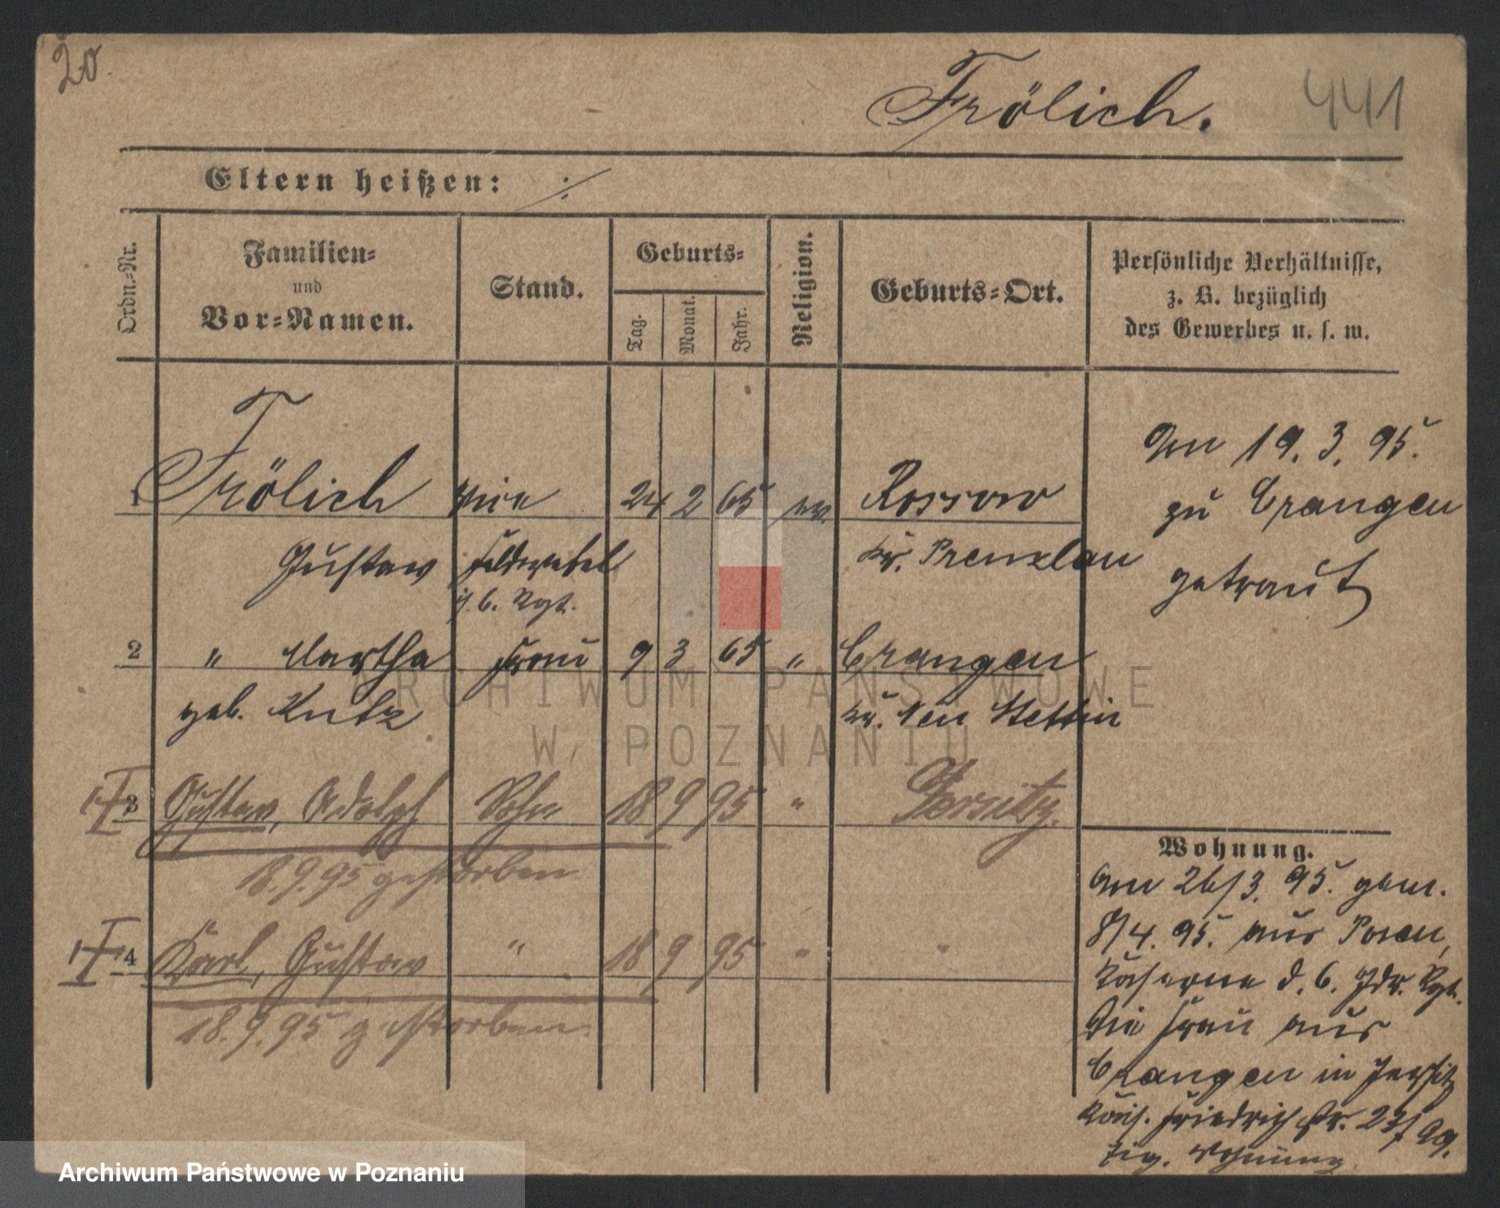 20
Frölich.
441
Eltern heißen: ./.
Ordn.-Nr.
Familien-
und
Vor-Namen.
Stand.
Geburts-
Tag.
Monat.
Jahr.
Religion.
Geburts-Ort.
Persönliche Verhältnisse,
z. B. bezüglich
des Gewerbes u. s. w.
1 Frölich Vice 24 2 65 ev. Rossow
Gustav Feldwebel Kr. Prenzlau
6. Rgt.
den 19. 3. 95.
zu Crangen
getraut
2 " Martha Frau 9 3 65 " Crangen
geb. Kutz Kr. Neu Stettin
3 Gustav, Adolph Sohn 18 9 95 " Jersitz.
18.9.95 gestorben
4 Karl, Gustav " 18 9 95 " "
18.9.95 gestorben
Wohnung.
Am 26/3. 95. gem.
8/4. 95. aus Posen,
Kaserne d. 6. Rgt.
die Frau aus
Crangen in Jersitz
Friedrich Str. 23/
Wohnung
ARCHIWUM PAŃSTWOWE
W POZNANIU
Archiwum Państwowe w Poznaniu